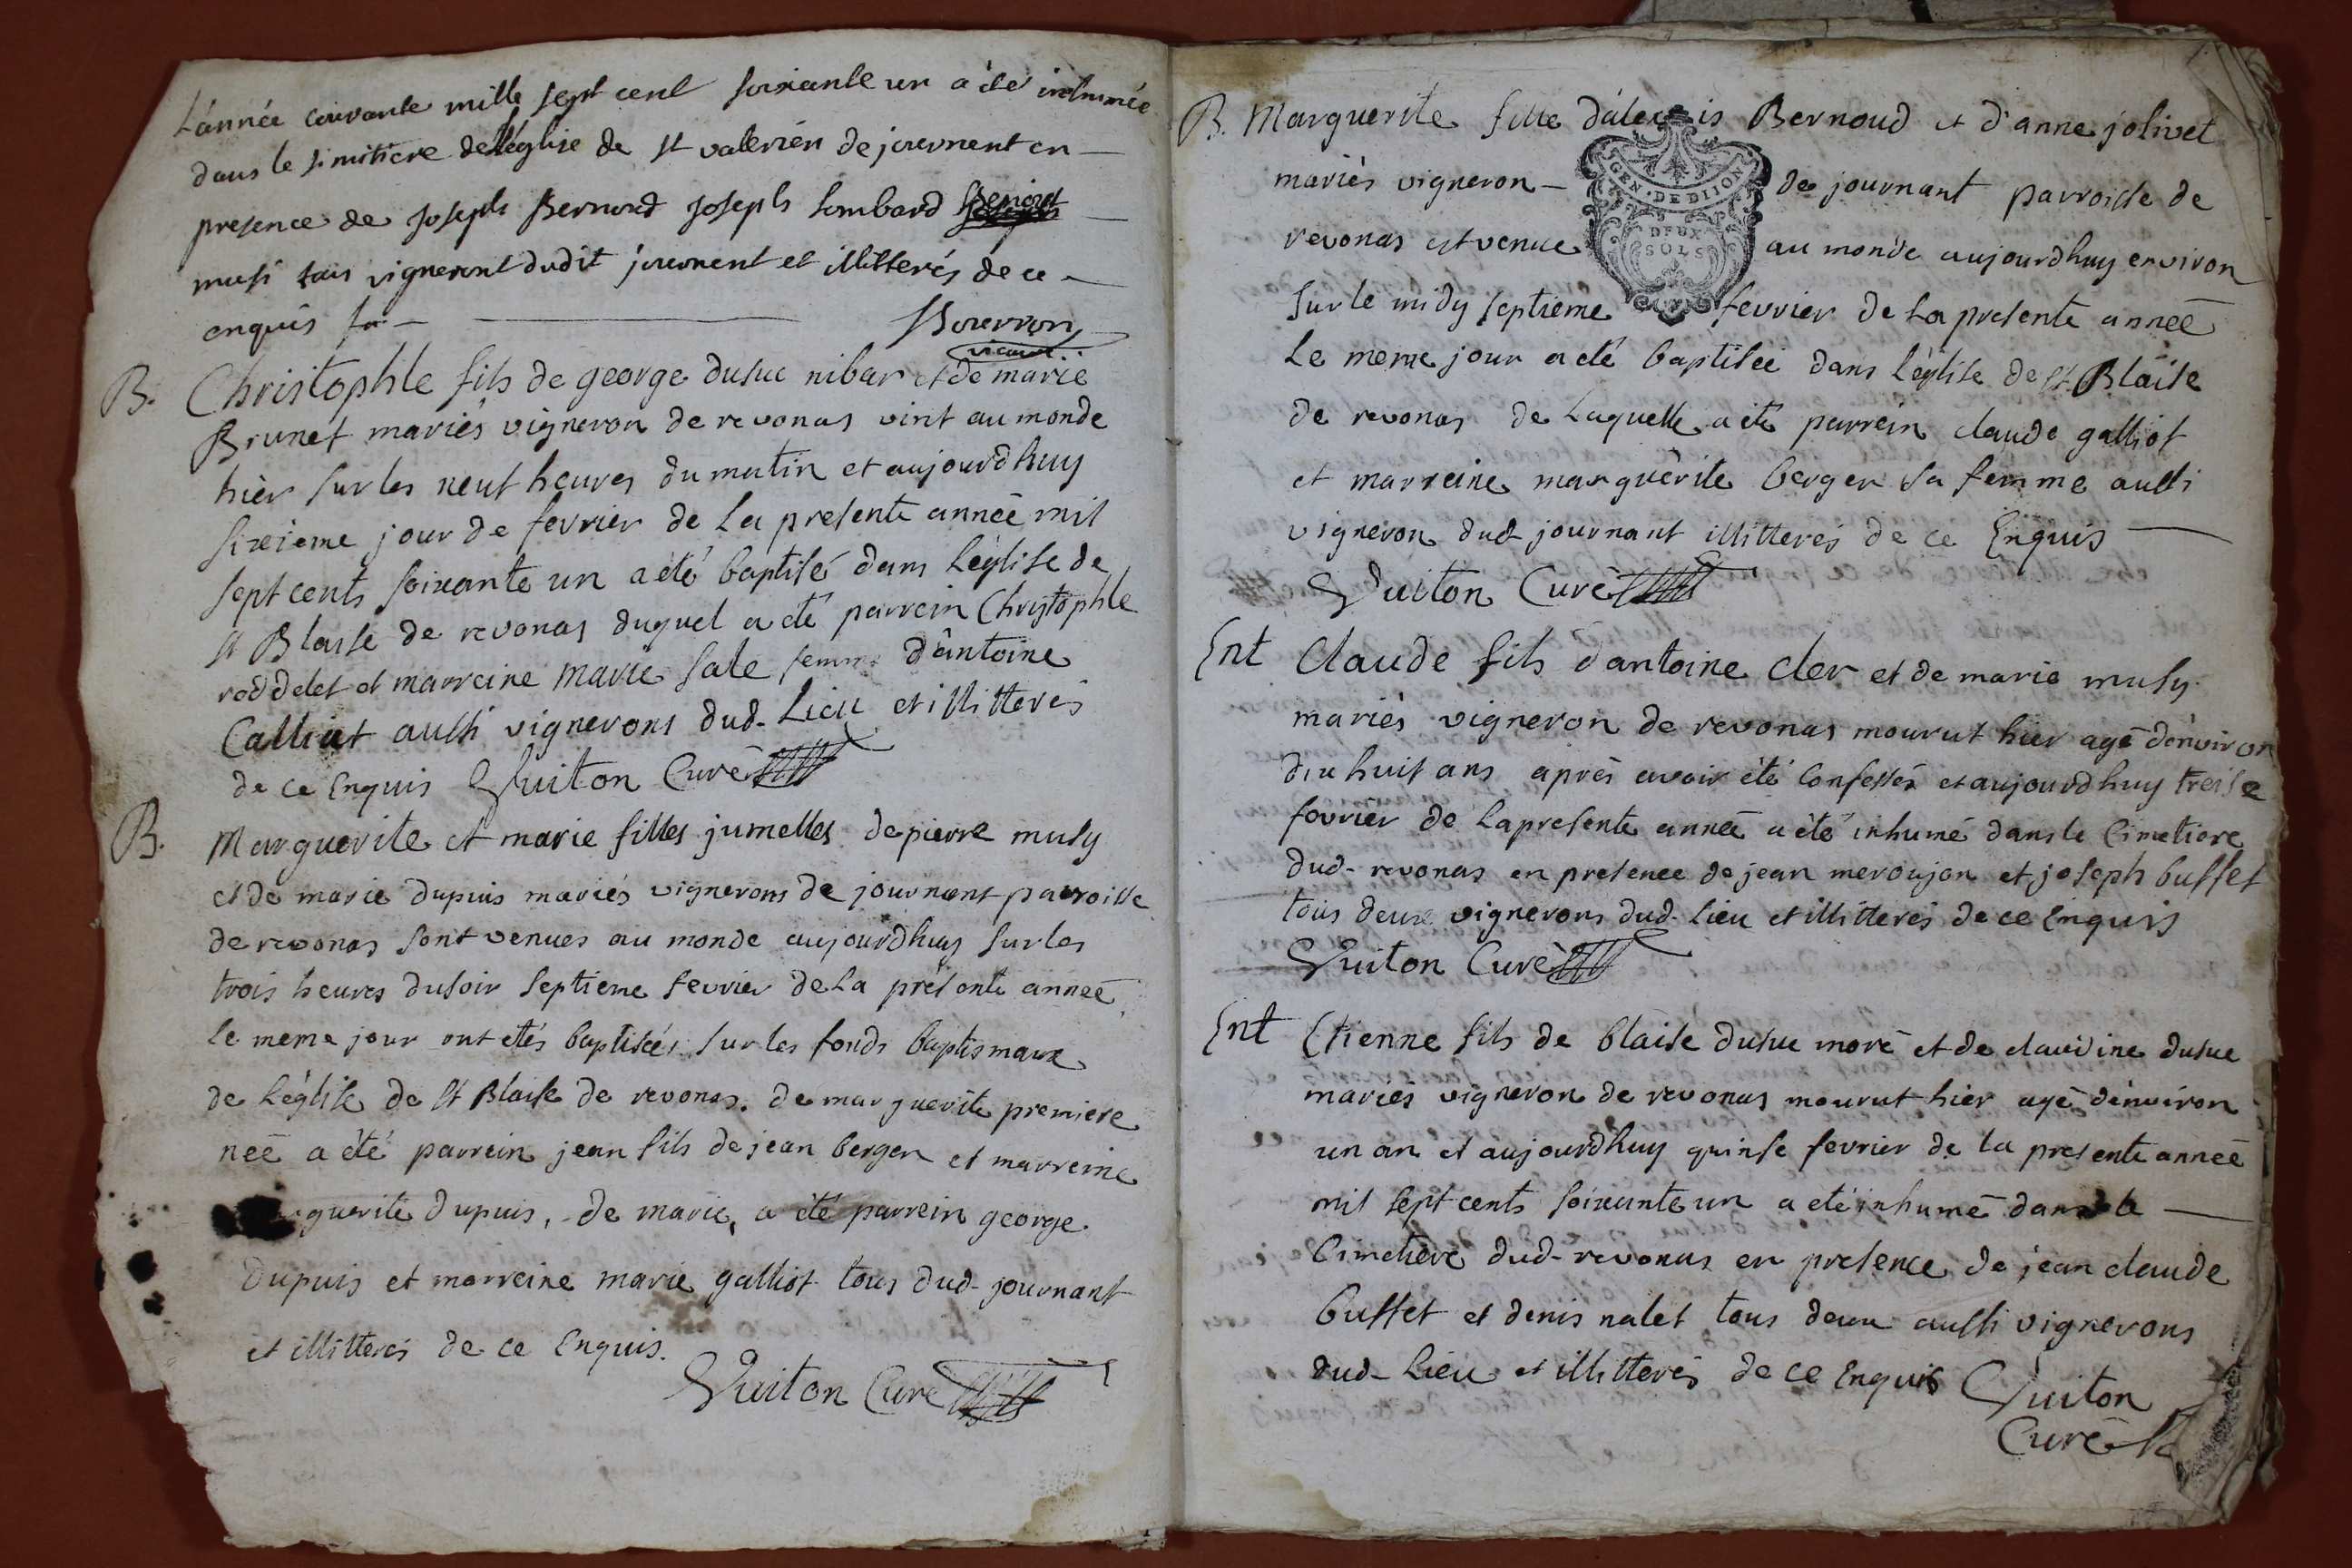 L'année courante mille sept cent soixante un a été inhumée
dans le simitiere de l'église de st valérién de journent en
presence de joseph Bernord joseph Lombard
musi tous vigneront dudit journent et illitterés de ce
enquis
Bourron
vicaire
B. Christophle fils de george dusuc nibar et de marie
Brunet mariés vigneron de revonas vint au monde
hièr sur les neuf heures du matin et aujourdhuy
sixieme jour de fevrier de la presente année mil
sept cents soixante un a été baptisé dans l'église de
st Blaise de revonas duquel a été parrein Christophle
roddelet et marreine marie sale femme d'antoine
Calliat aussi vignerons dud. Lieu et illitterés
de ce Enquis Guiton Curé
B. Marguerite et marie filles jumelles de pierre musy
et de marie dupuis mariés vignerons de journant parroisse
de revonas sont venues au monde aujourdhuy sur les
trois heures du soir septieme fevrier de la présente année
le meme jour ont étés baptisées sur les fonds baptismaux
de l'église de st Blaise de revonas. de marguerite premiere
née a été parrein jean fils de jean berger et marreine
guerite dupuis, de marie, a été parrein george
dupuis et marreine marie galliot tous dud. journant
et illitterés de ce Enquis.
Guiton Curé
B. Marguerite fille d'alexis Bernoud et d'anne jolivet
mariés vigneron de journant parroisse de
revonas est venue au monde aujourdhuy environ
sur le midy septieme fevrier de la presente année
Le meme jour a été baptisée dans l'église de st Blaise
de revonas de Laquelle a été parrein claude galliot
et marreine marguérite berger sa femme aussi
vigneron dud. journant illitterés de ce Enquis
Guiton Curé
GEN. DE DIION
DEUX
SOLS
Ent Claude fils d'antoine cler et de marie musy
mariés vigneron de revonas mourut hier agé d'environ
dix huit ans aprés avoir été confessé et aujourdhuy treise
fevrier de la presente année a été inhumé dans le Cimetiere
dud. revonas en presence de jean meroujon et joseph buffet
tous deux vignerons dud. Lieu et illitterés de ce Enquis
Guiton Curé
Ent Etienne fils de blaise dusuc moré et de claudine dusuc
mariés vigneron de revonas mourut hier agé d'environ
un an et aujourdhuy quinse fevrier de la presente année
mil sept cents soixante un a été inhumé dans le
Cimetiére dud. revonas en presence de jean claude
buffet et denis nalet tous deux aussi vignerons
dud. Lieu et illitterés de ce Enquis Guiton
Curé